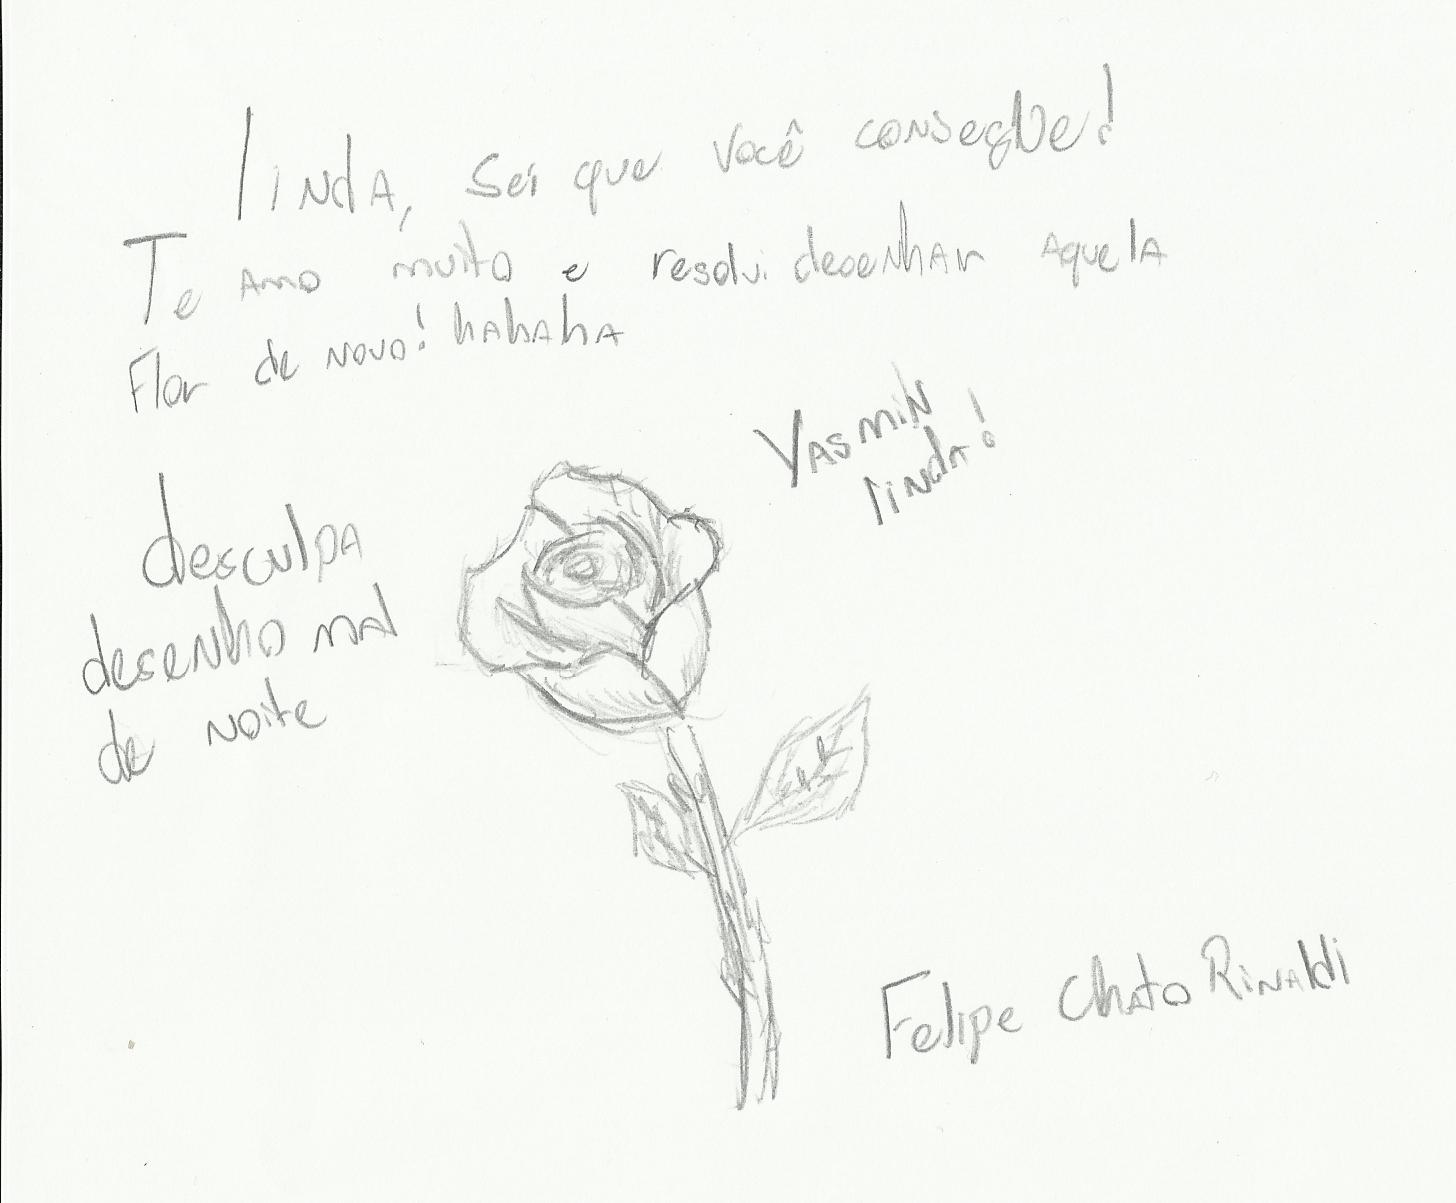 linda, sei que você consegue!
Te amo muito e resolvi desenhar aquela
Flor de novo! hahaha
Yasmin
linda!
desculpa
desenho mal
de noite
Felipe Chato Rinaldi